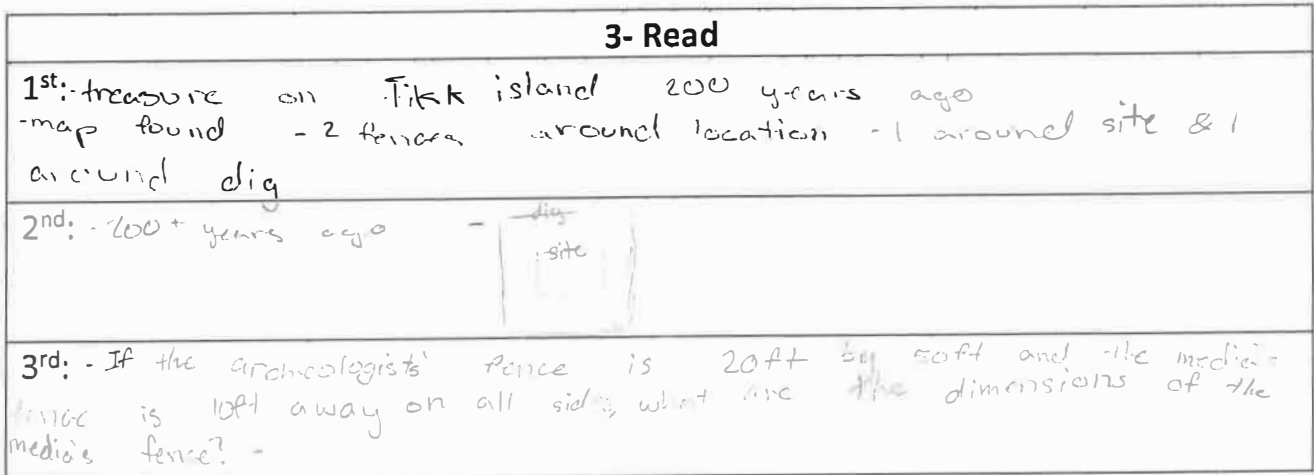 3- Read
1st:-treasure on Tikk island 200 years ago
-map found - 2 fences around location - 1 around site & 1
around dig
2nd: - 200+ years ago - dig
site
3rd: - If the archeologists' fence is 20ft by 50ft and the media's
fence is 10ft away on all sides, what are the dimensions of the
media's fence? -